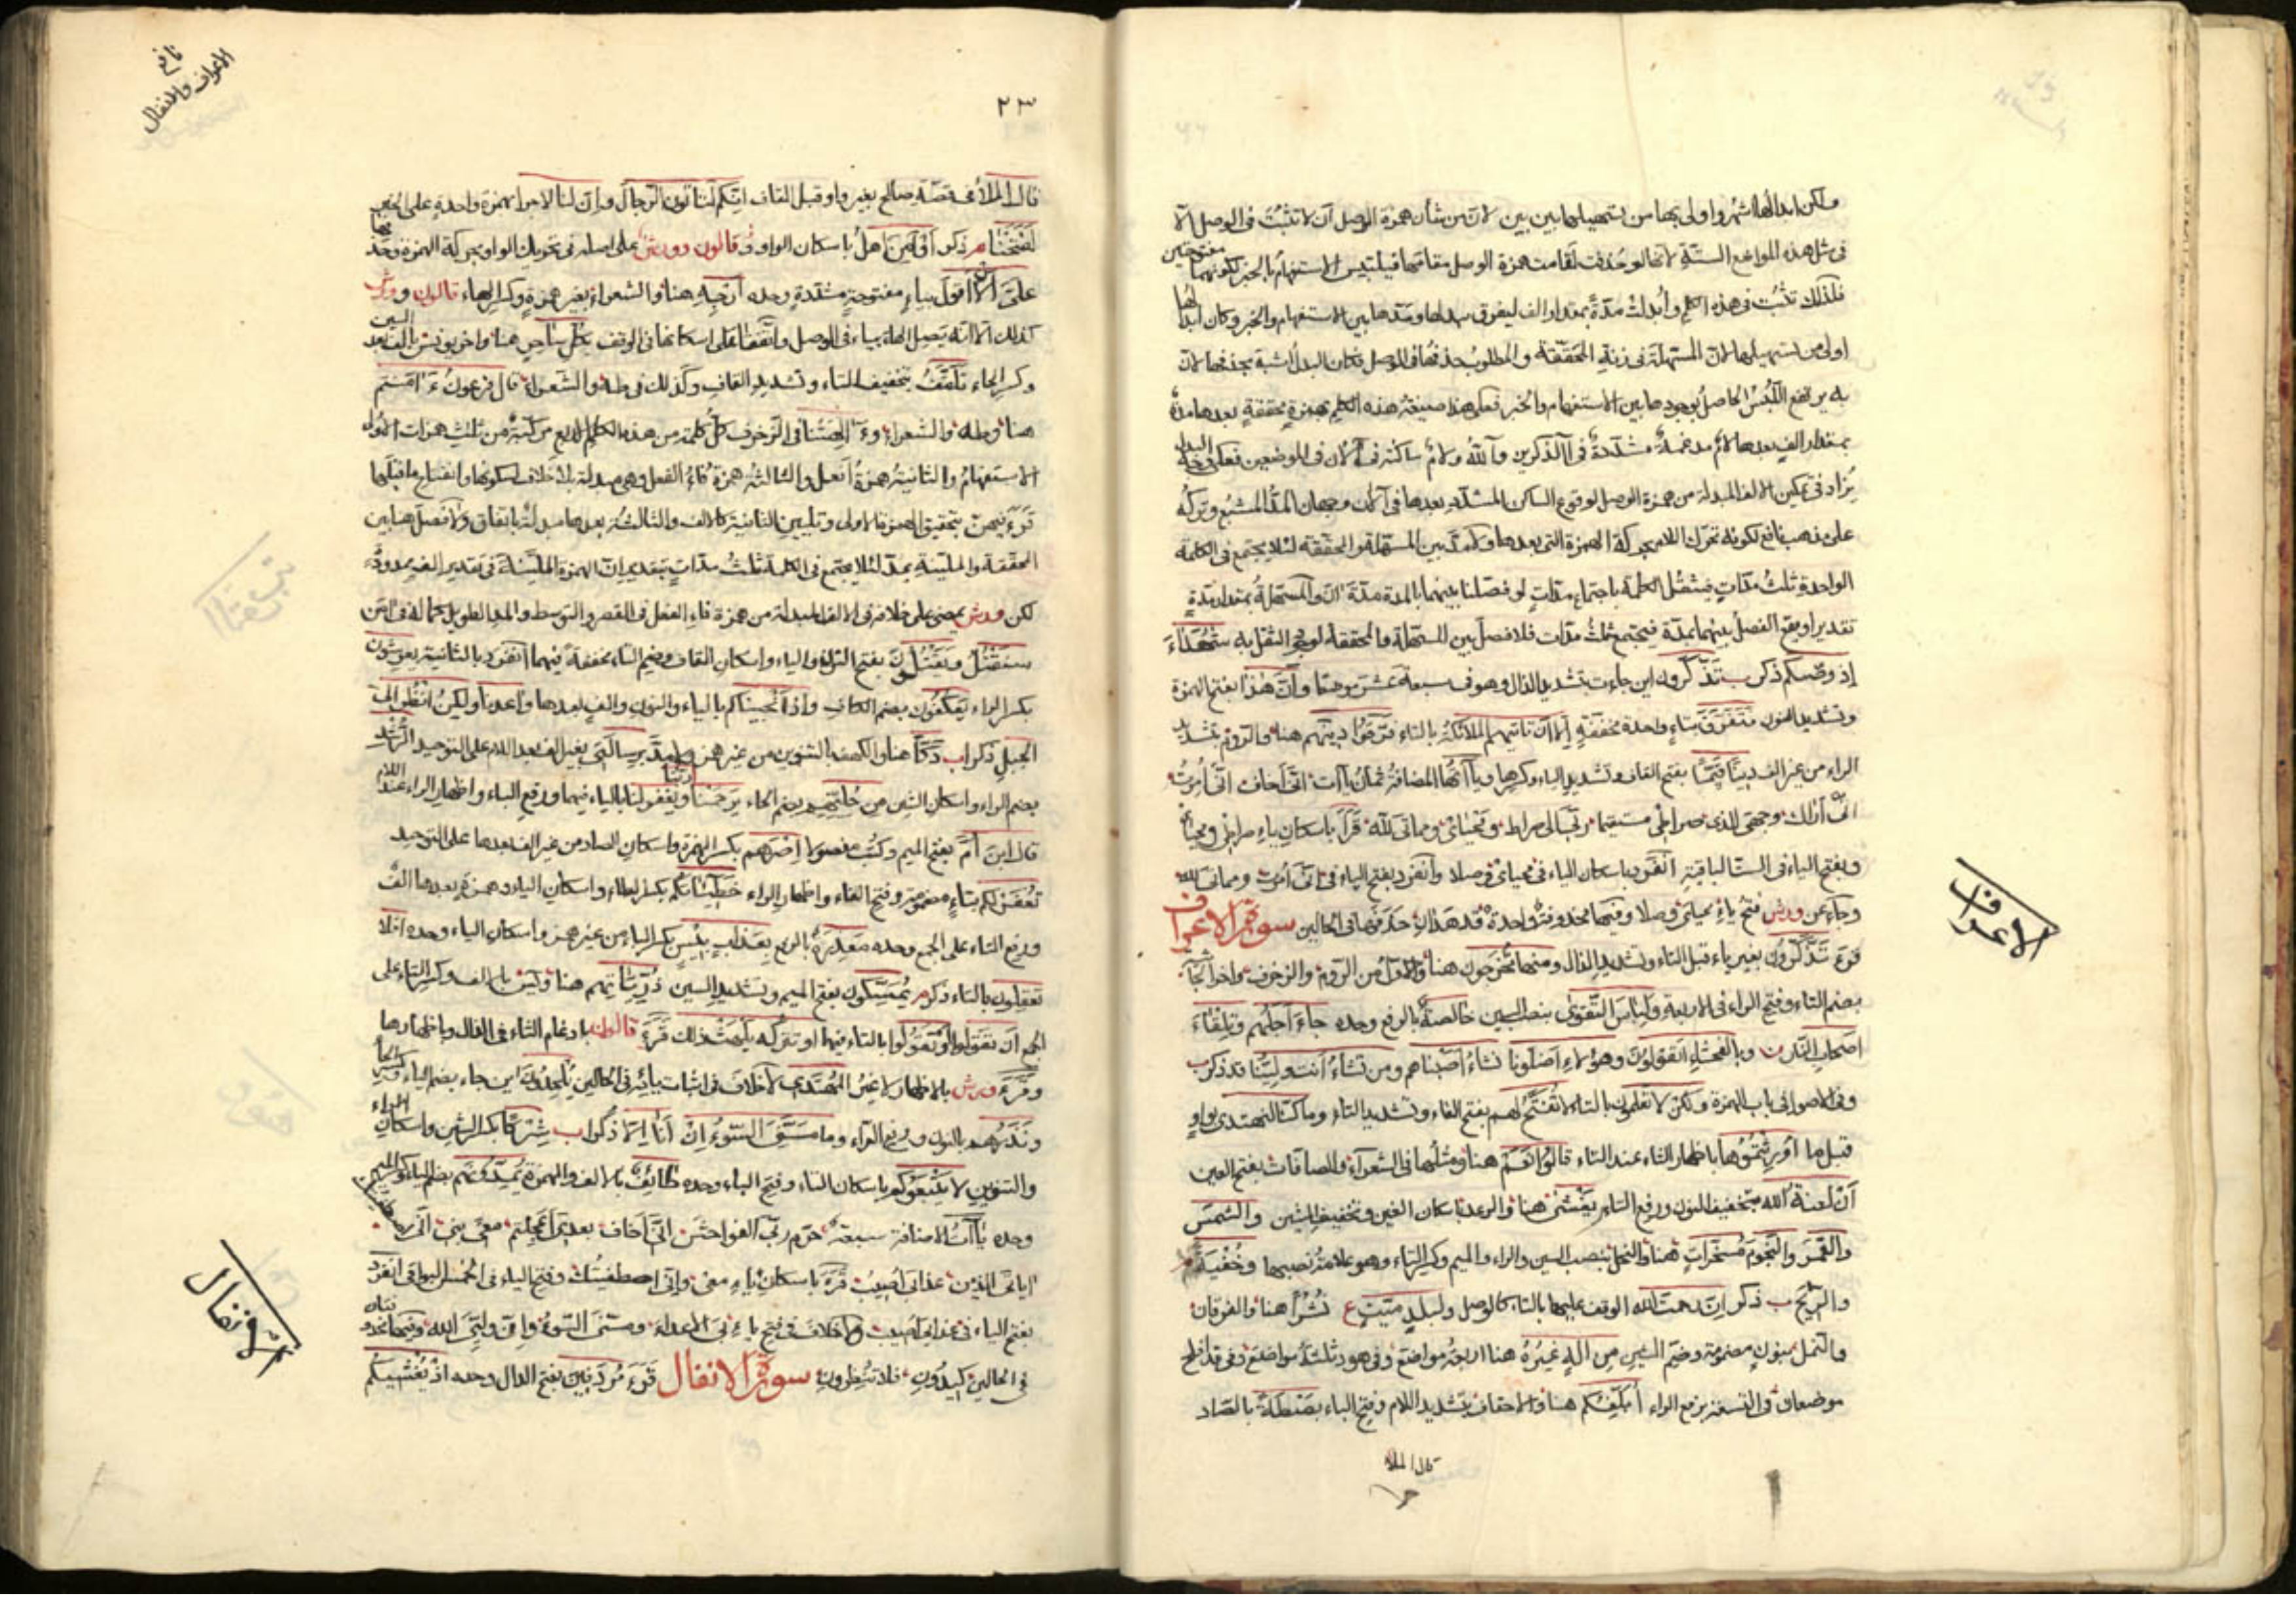 ولكن ابدالها اشهر واولى بها من تسهيلها بين بين لان من شأن همزة الوصل ان لا تثبت فى الوصل الا
فى مثل هذه المواضع الستة لانها لو حذفت لقامت همزة الوصل مقامها فيلتبس الاستفهام بالخبر لكونهما مفتوحتين
فلذلك تثبت فى هذه الكلم وابدلت مدة بمقدار الف ليفرق بدلها ومدها بين الاستفهام والخبر وكان ابدالها
اولى من تسهيلها لان المسهلة فى زنة المحققة والمطلوب حذفها فى الوصل فكان البدل اشبه بحذفها لان
به يرتفع اللبس الحاصل بوجودها بين الاستفهام والخبر فعلى هذا صيغة هذه الكلم بهمزة محققة بعدها مدة
بمقدار الف بعدها لام مدغمة مشددة فى آلذكرين وآلله ولام ساكنة فى آلان فى الموضعين فعلى وجه البدل
يزاد فى تمكين الالف المبدلة من همزة الوصل لوقوع الساكن المشدد بعدها فى آلان وجهان المد المشبع وتركه
على مذهب نافع لكونه تحرك اللام بحركة الهمزة التى بعدها ولا مد بين المسهلة والمحققة لئلا يجتمع فى الكلمة
الواحدة ثلث مدات فيثقل الكلمة باجتماع مدات لو فصلنا بينهما بالمدة مدة ان والمسهلة بمقدار مدة
تقديرا ويقع الفصل بينهما بمدة فيجتمع ثلث مدات فلا فصل بين المسهلة والمحققة لوجود الثقل به شهداء
اذ وصيكم ذكر ب تذكرون اين جاءت بتشديد الذال وهو فى سبعة عشر موضعا وان هذا بفتح الهمزة
وتشديد النون فتفرق بتاء واحدة مخففة الا ان تاتيهم الملائكة بالتاء فرقوا دينهم هنا والروم بتشديد
الراء من غير الف دينا قيما بفتح القاف وتشديد الياء وكسرها وياآتها المضافة ثمان ياآت انى اخاف انى امرت
انى اراك وجهى للذى صراطى مستقيما ربى الى صراط ومحياى ومماتى لله قرآ باسكان ياء صراطى ومحياى
وبفتح الياء فى الست الباقية انفرد باسكان الياء فى محياى وصلا وانفرد بفتح الياء فى انى امرت ومماتى لله
وجاء عن ورش فتح ياء محياى وصلا وفيها محذوفة واحدة قد هدان حذفها فى الحالين سورة الاعراف
قرء تذكرون بغير ياء قبل التاء وتشديد الذال ومنها تخرجون هنا والاول من الروم والزخرف واخر الجاثية
بضم التاء وفتح الراء فى الاربعة ولباس التقوى بنصب السين خالصة بالرفع وحده جاء اجلهم وتلقاء
اصحاب النار وبالفحشاء اتقولون وهؤلاء اضلونا نشاء اصبناهم ومن تشاء انت ولينا قد ذكر ب
وفى الاصول فى باب الهمزة ولكن لا تعلمون بالتاء لا تفتح لهم بفتح الفاء وتشديد التاء وما كنا لنهتدى بواو
قبل ما اورثتموها باظهار الثاء عند التاء قالوا نعم هنا ومثلها فى الشعراء والصافات بفتح العين
ان لعنة الله بتخفيف النون ورفع التاء يغشى هنا والرعد باسكان الغين وتخفيف الشين والشمس
والقمر والنجوم مسخرات هنا والنحل بنصب السين والراء والميم وكسر التاء وهو علامة نصبها وخفية
والريح ب ذكر ان رحمت الله الوقف عليها بالتاء كالوصل ولبلد ميت ع نشرا هنا والفرقان
والنمل بنون مضمومة وضم الشين من اله غيره هنا اربعة مواضع وفى هود ثلثة مواضع وفى قد افلح
موضعان فى التسعة برفع الراء ابلغكم هنا والاحقاف بتشديد اللام وفتح الباء بصطة بالصاد
قال الملا
الاعراف
نافع
الاعراف والانفال
٢٣
قال الملأ فى قصة صالح بغير واو قبل القاف ائنكم لتاتون الرجال وان لنا لاجرا بهمزة واحدة على الخبر فيها
لفتحنا م ذكر او امن اهل باسكان الواو قالون وورش على اصله فى تحريك الواو بحركة الهمزة وحذفها
على ان لا اقول بياء مفتوحة مشددة وحده ارجه هنا والشعراء بغير همزة وكسر الهاء قالون وورش
كذلك الا انه يصل الهاء بياء فى الوصل واتفقا على اسكانها فى الوقف بكل ساحر هنا واخر يونس بالف بعد السين
وكسر الحاء تلقف بتخفيف التاء وتشديد القاف وكذلك فى طه والشعراء قال فرعون ءامنتم
هنا وطه والشعراء وءالهتنا فى الزخرف كل كلمة من هذه الكلم الاربع مركبة من ثلث همزات الاولى
الاستفهام والثانية همزة افعل والثالثة همزة فاء الفعل وهى مبدلة بلا خلاف لسكونها وانفتاح ما قبلها
قرء فيهن بتحقيق الهمزة الاولى وتليين الثانية كالالف والثالثة بعدها مبدلة باتفاق ولا فصل هنا بين
المحققة والملينة بمد لئلا يجتمع فى الكلمة ثلث مدات بتقدير ان الهمزة الملينة فى تقدير الف ممدودة
لكن ورش يمضى على خلافه فى الالف المبدلة من همزة فاء الفعل فى القصر والتوسط والمد الطويل كما له فى امن
سنقتل ويقتلون بفتح النون والياء واسكان القاف وضم التاء مخففة فيهما انفرد بالثانية يعرشون
بكسر الراء يعكفون بضم الكاف واذ انجيناكم بالياء والنون والف بعدها واعدنا ولكن انظر الى
الجبل ذكر اب دكا هنا والكهف بالتنوين من غير همز ولا مد برسالتى بغير الف بعد اللام على التوحيد الرشد
بضم الراء واسكان الشين من حليهم بضم الحاء يرحمنا ربنا ويغفر لنا بالياء فيهما ورفع الباء واظهار الراء عند اللام
قال ابن ام بفتح الميم وكتب مفصولا اصرهم بكسر الهمزة واسكان الصاد من غير الف بعدها على التوحيد
تغفر لكم بتاء مضمومة وفتح الفاء واظهار الراء خطيئاتكم بكسر الطاء واسكان الياء وهمزة بعدها الف
ورفع التاء على الجمع وحده معذرة بالرفع بعذاب بئيس بكسر الباء من غير همز واسكان الياء وحده افلا
تعقلون بالتاء ذكر م يمسكون بفتح الميم وتشديد السين ذرياتهم هنا ويس بالالف وكسر التاء على
الجمع ان تقولوا او تقولوا بالتاء فيهما او تتركه يلهث ذلك قرء قالون بادغام الثاء فى الذال وباظهارها
وقرء ورش بالاظهار لا غير المهتدى لا خلاف فى اثبات يائه فى الحالين يلحدون اين جاء بضم الياء وكسر الحاء
ونذرهم بالنون ورفع الراء وما مسنى السوء ان انا الا ذكر اب شركا بكسر الشين واسكان الراء
والتنوين لا يتبعوكم باسكان التاء وفتح الباء وحده طائف بالالف والهمزة يمدونهم بضم الياء وكسر الميم
وحده ياآت الاضافة سبعة حرم ربى الفواحش انى اخاف بعدى اعجلتم معى بنى انى
اياتى الذين عذابى اصيب قرء باسكان ياء معى وانى اصطفيتك وفتح الياء فى الخمس البواقى انفرد
بفتح الياء فى عذابى اصيب ولا خلاف فى فتح ياء بى الاعداء ومسنى السوء وان وليى الله وفيها محذوفتان
فى الحالين كيدون فلا تنظرون سورة الانفال قرء مردفين بفتح الدال وحده اذ يغشيكم
الانفال